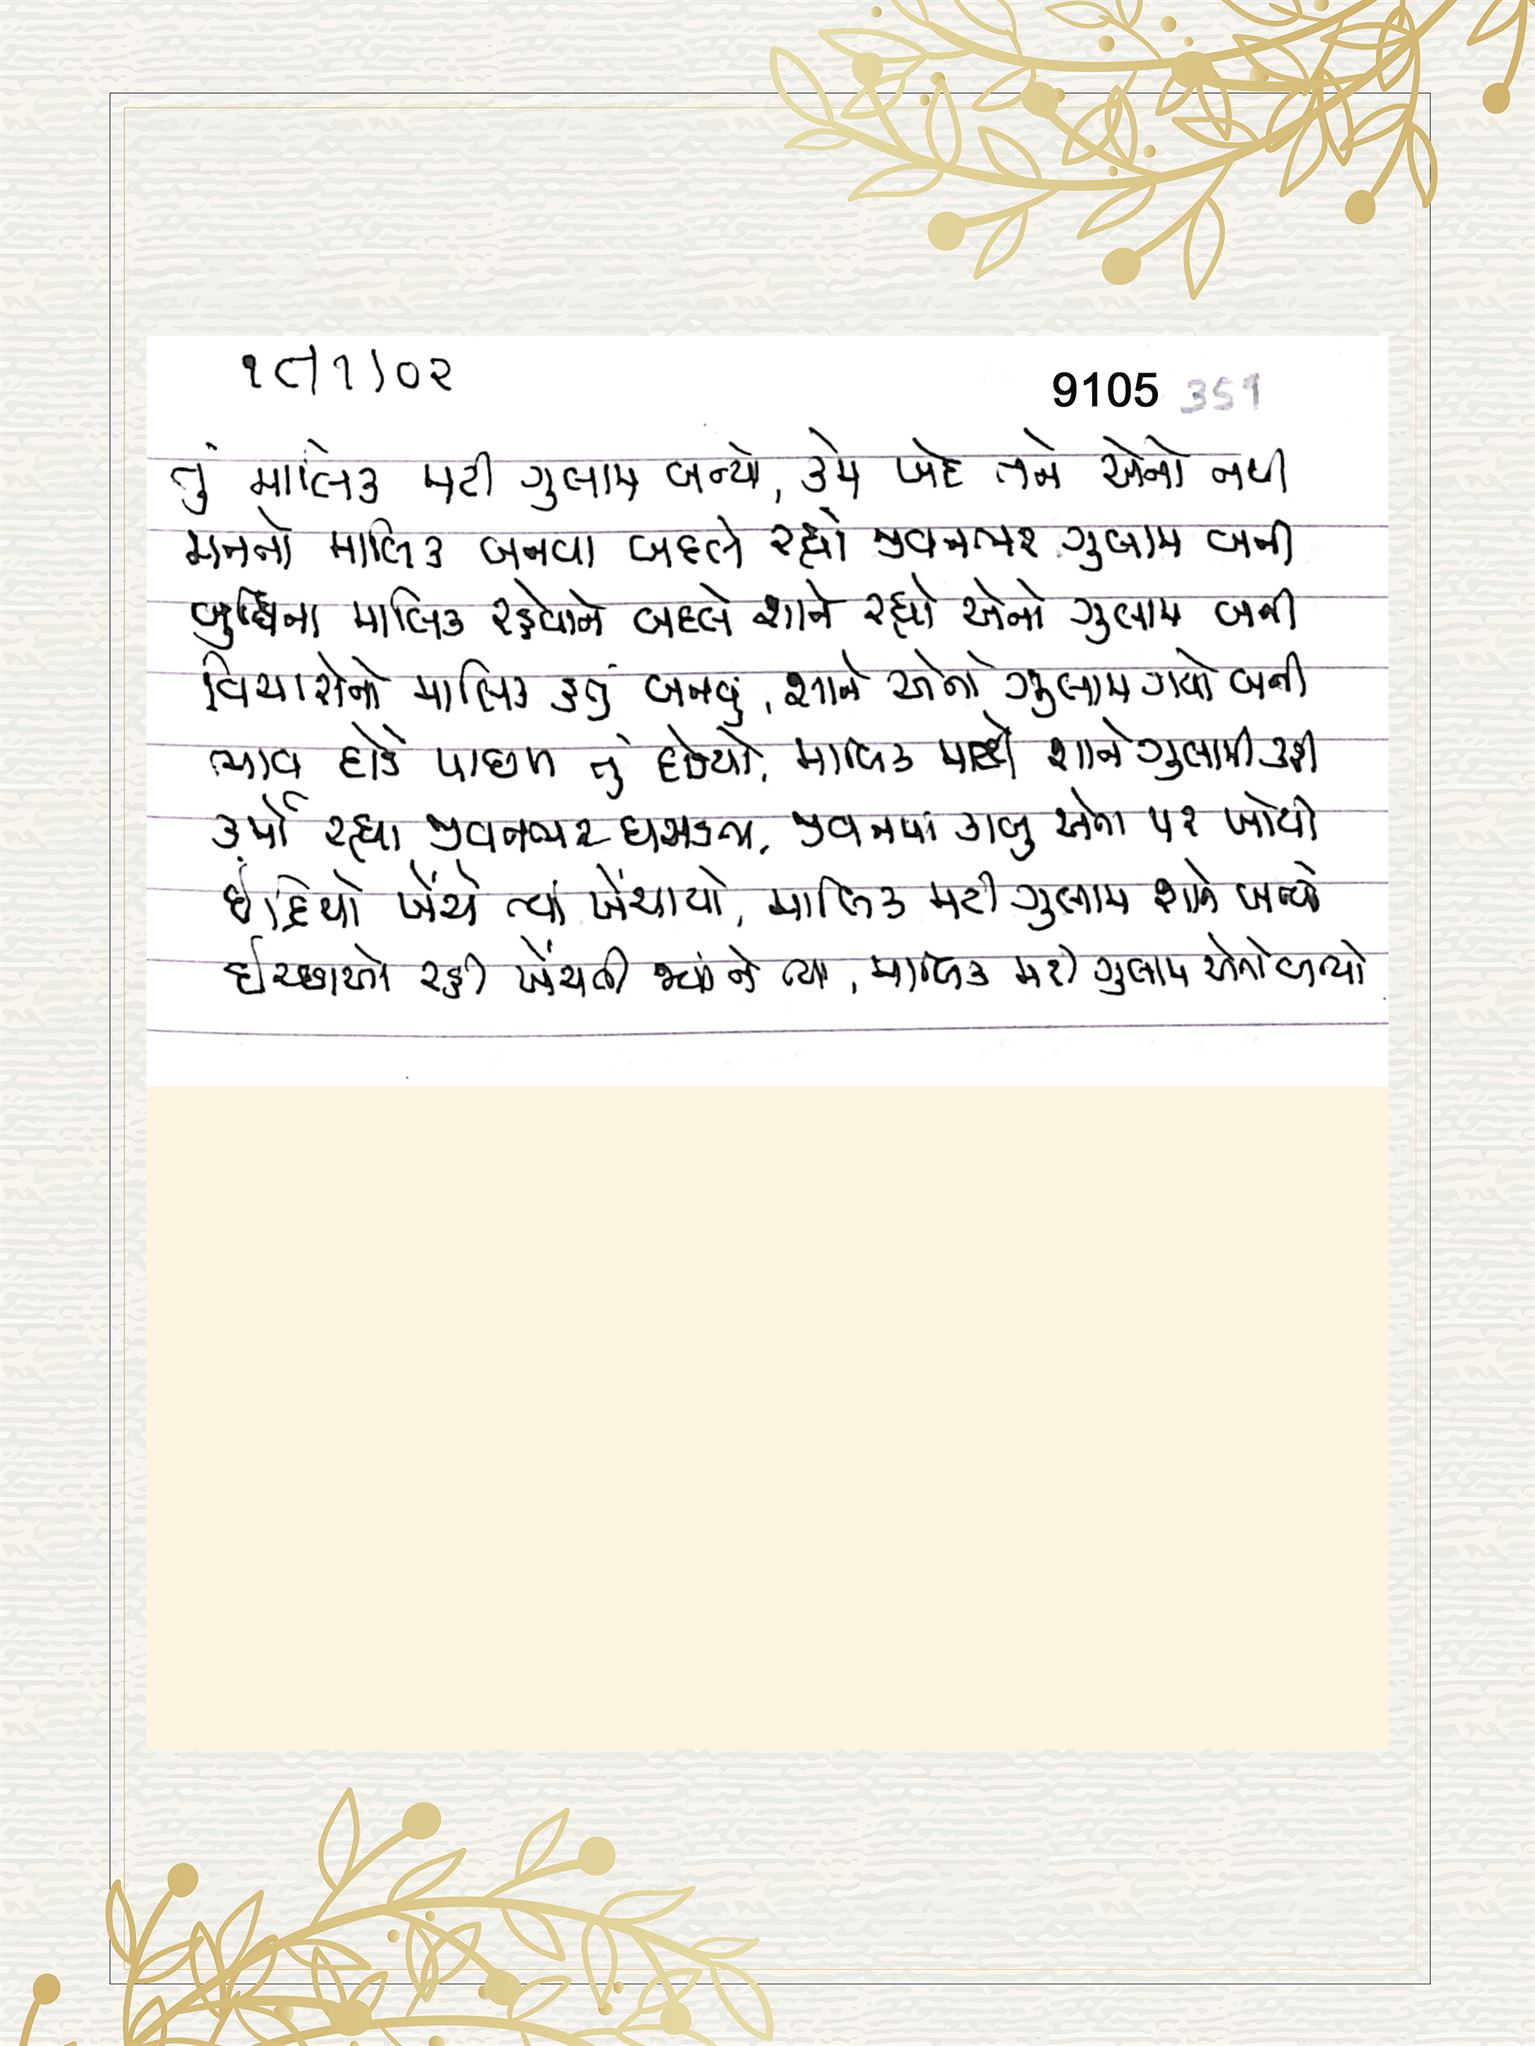 ૧૮/૧/૦૨
9105 351
તું માલિક મટી ગુલામ બન્યો, કેમ ખેદ તને એનો નથી
મનનો માલિક બનવા બદલે રહ્યો જીવનભર ગુલામ બની
બુદ્ધિના માલિક રહેવાને બદલે શાને રહ્યો એનો ગુલામ બની
વિચારોનો માલિક હતું બનવું, શાને એનો ગુલામ ગયો બની
ભાવ હોડે પાછળ તું દોડયો, માલિક શાને ગુલામી કરી
કર્યા રહ્યા જીવનભર ધમકજા, જીવનમાં કાબુ એના પર ખોયી
ઇંદ્રિયો ખેંચે ત્યાં ખેંચાયો, માલિક મટી ગુલામ શાને બન્યો
ઇચ્છાઓ રહી ખેંચતી જ્યાં ને ત્યાં, માલિક મટી ગુલામ એનો બન્યો